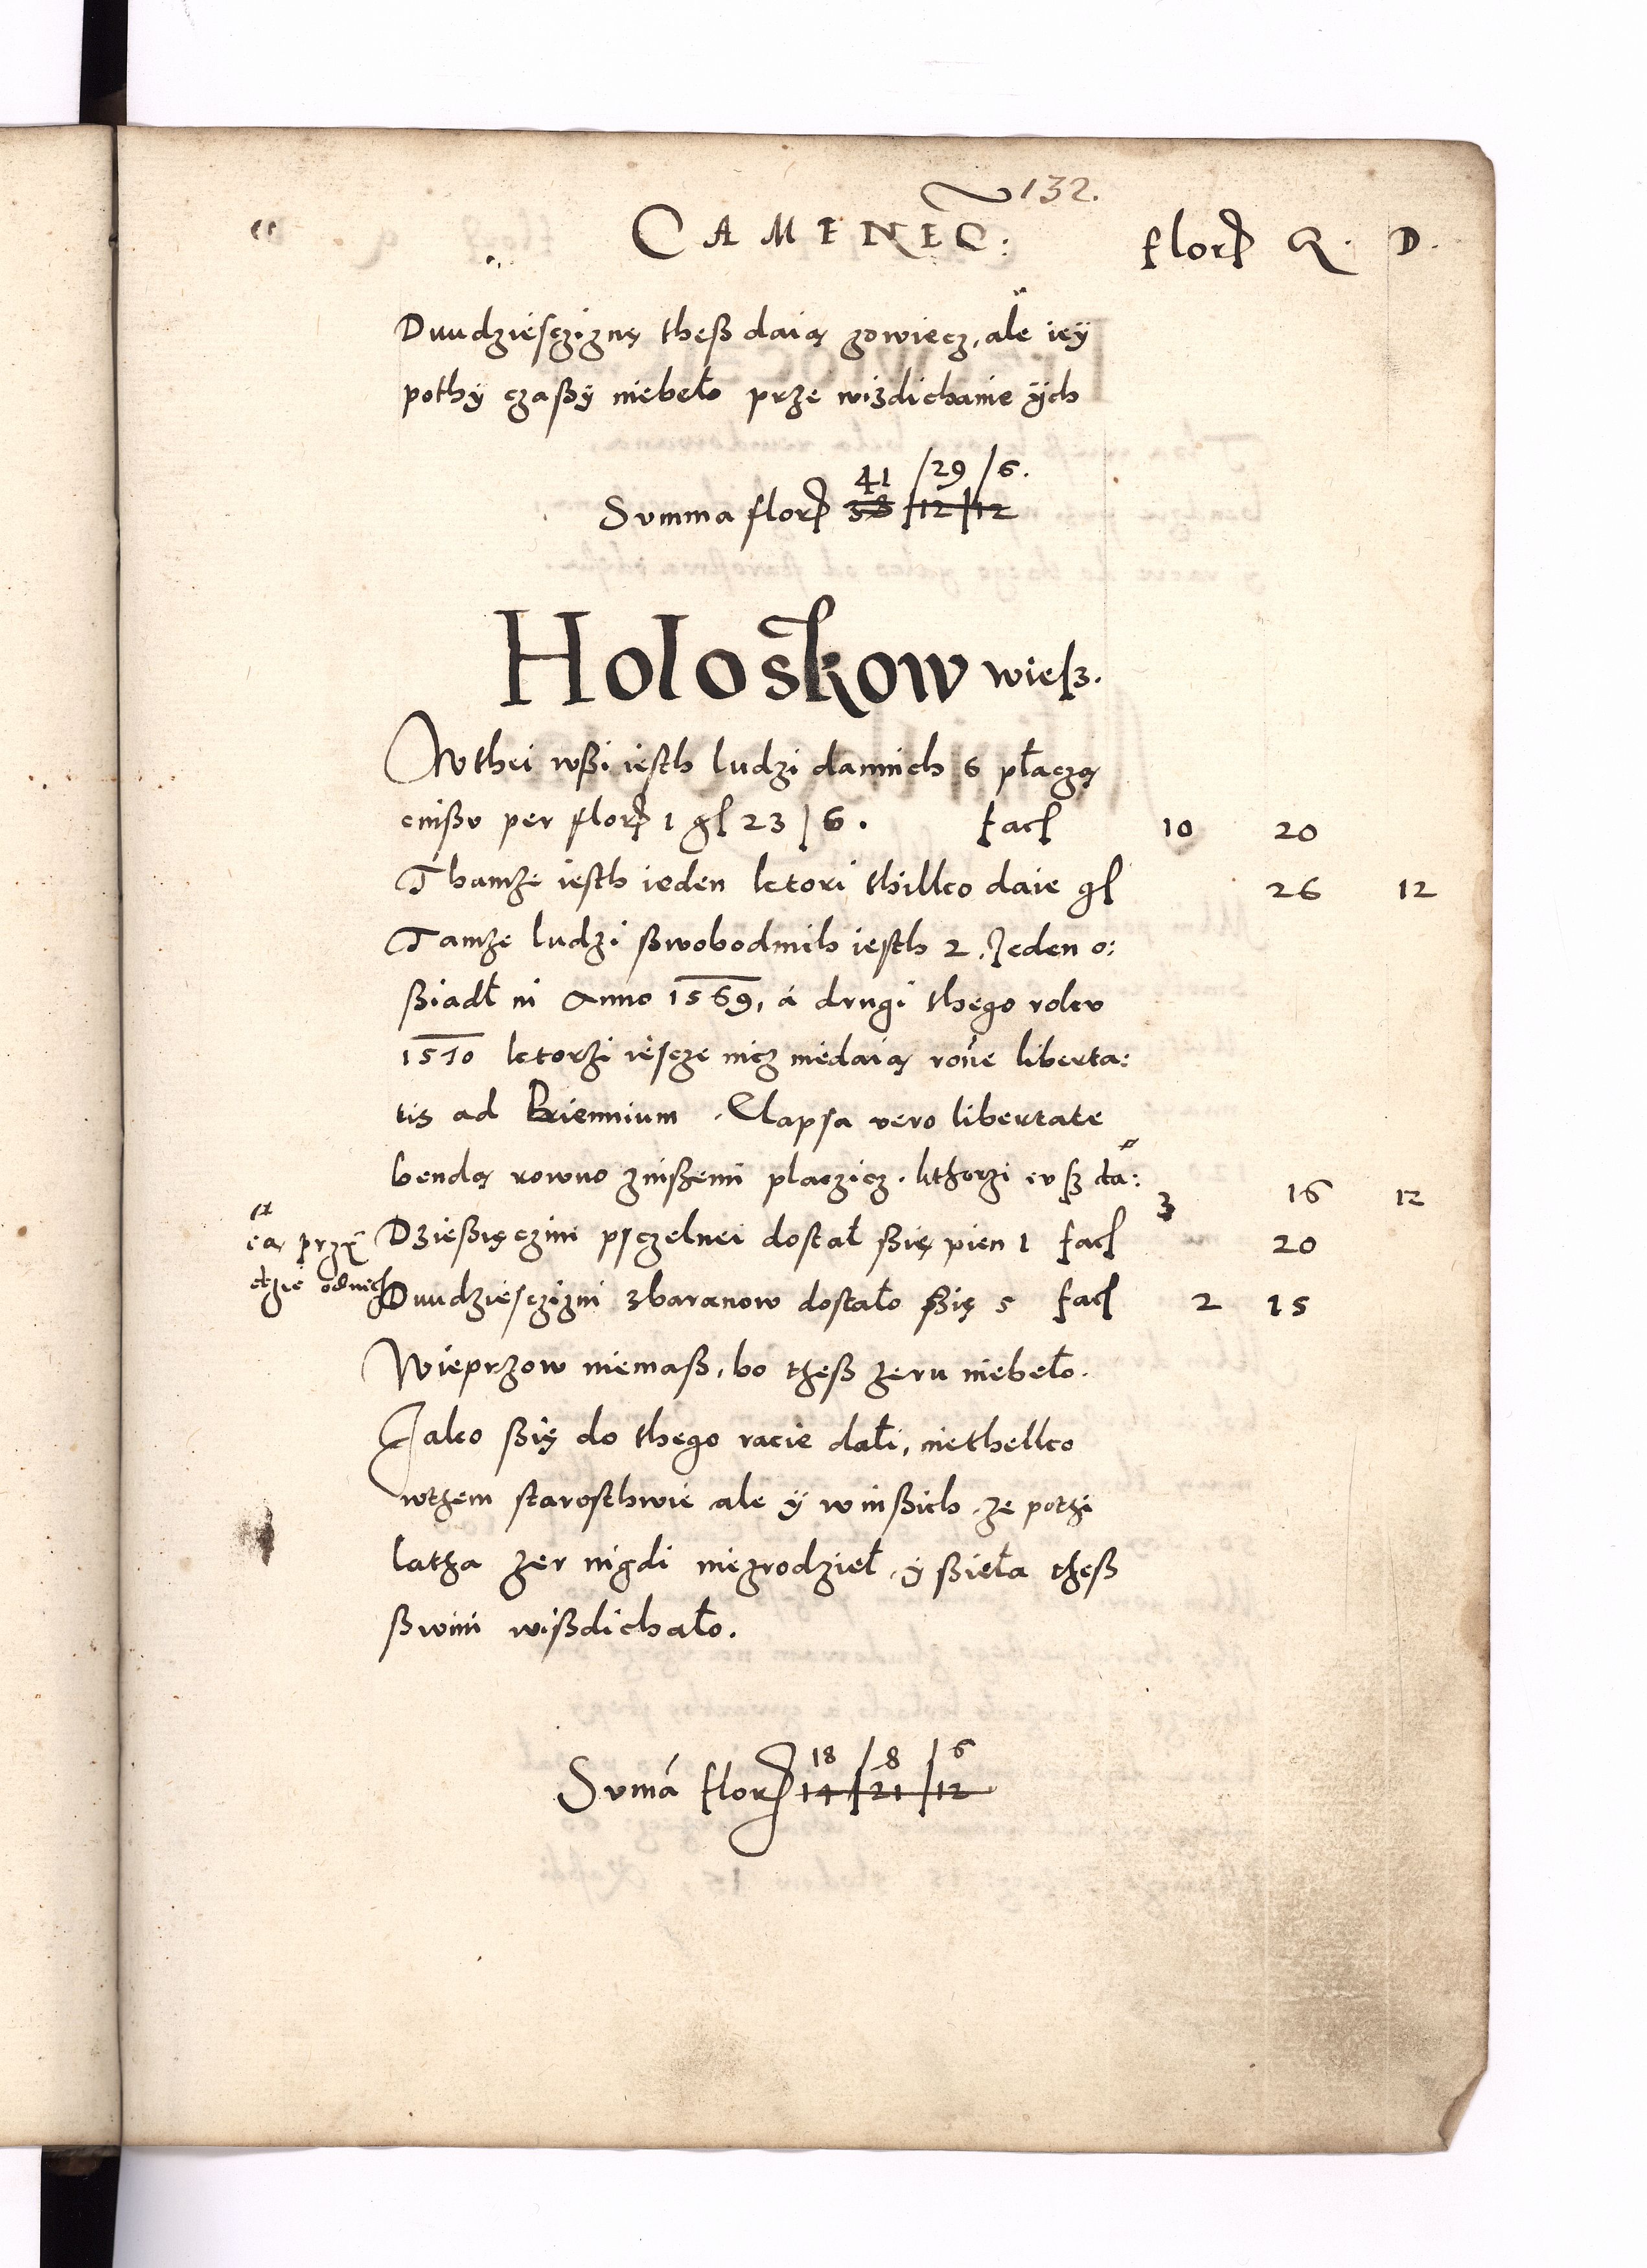 132.
CAMENEC: flor. G. D.
Dwudziescziznę theß daią zowiecz, ale iey
pothy czaßy niebeło prze wizdichanie ÿch
41 /29 /6.
Summa flor 38 /12/12
Holoskow wiesz.
Wthei wßi iesth ludzi dannich 6 płaczą
cinßu per flor 1 gſ 23 / 6. facſ 10 20
Thamże iesth ieden ktori thillko daie gſ 26 12
Tamże ludzi ßwobodnih iesth 2. Jeden o:
ßiadł in Anno 1569, á drugi thego roku
1570 ktorżi iescze nicz niedaią rone liberta:
tis ad Triennium. Elapsa vero libertate
bendą rowno zinßzemi placzicz. kthorzi cv sz da: 3 16 12
ią przy
Dzießięczini psczelnei dostał ßię pien 1 facſ 20
dzie odnich
Dwudziesczizni zbaranow dostało ßię 5 facſ 2 15
Wieprzow niemaß, bo theß żeru niebeło.
Jako ßię do thego racie dałi, niethellko
wthem starosthwie ale ÿ winßich że pothi
latha żer nigdi niezrodzieł, ÿ ßieła theß
ßwini wißdichało.
18 / 8 / 6
Suma flor 14 / 21 / 12